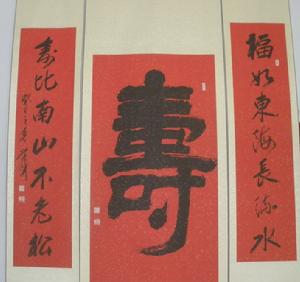 福如東海長流水
壽
壽比南山不老松